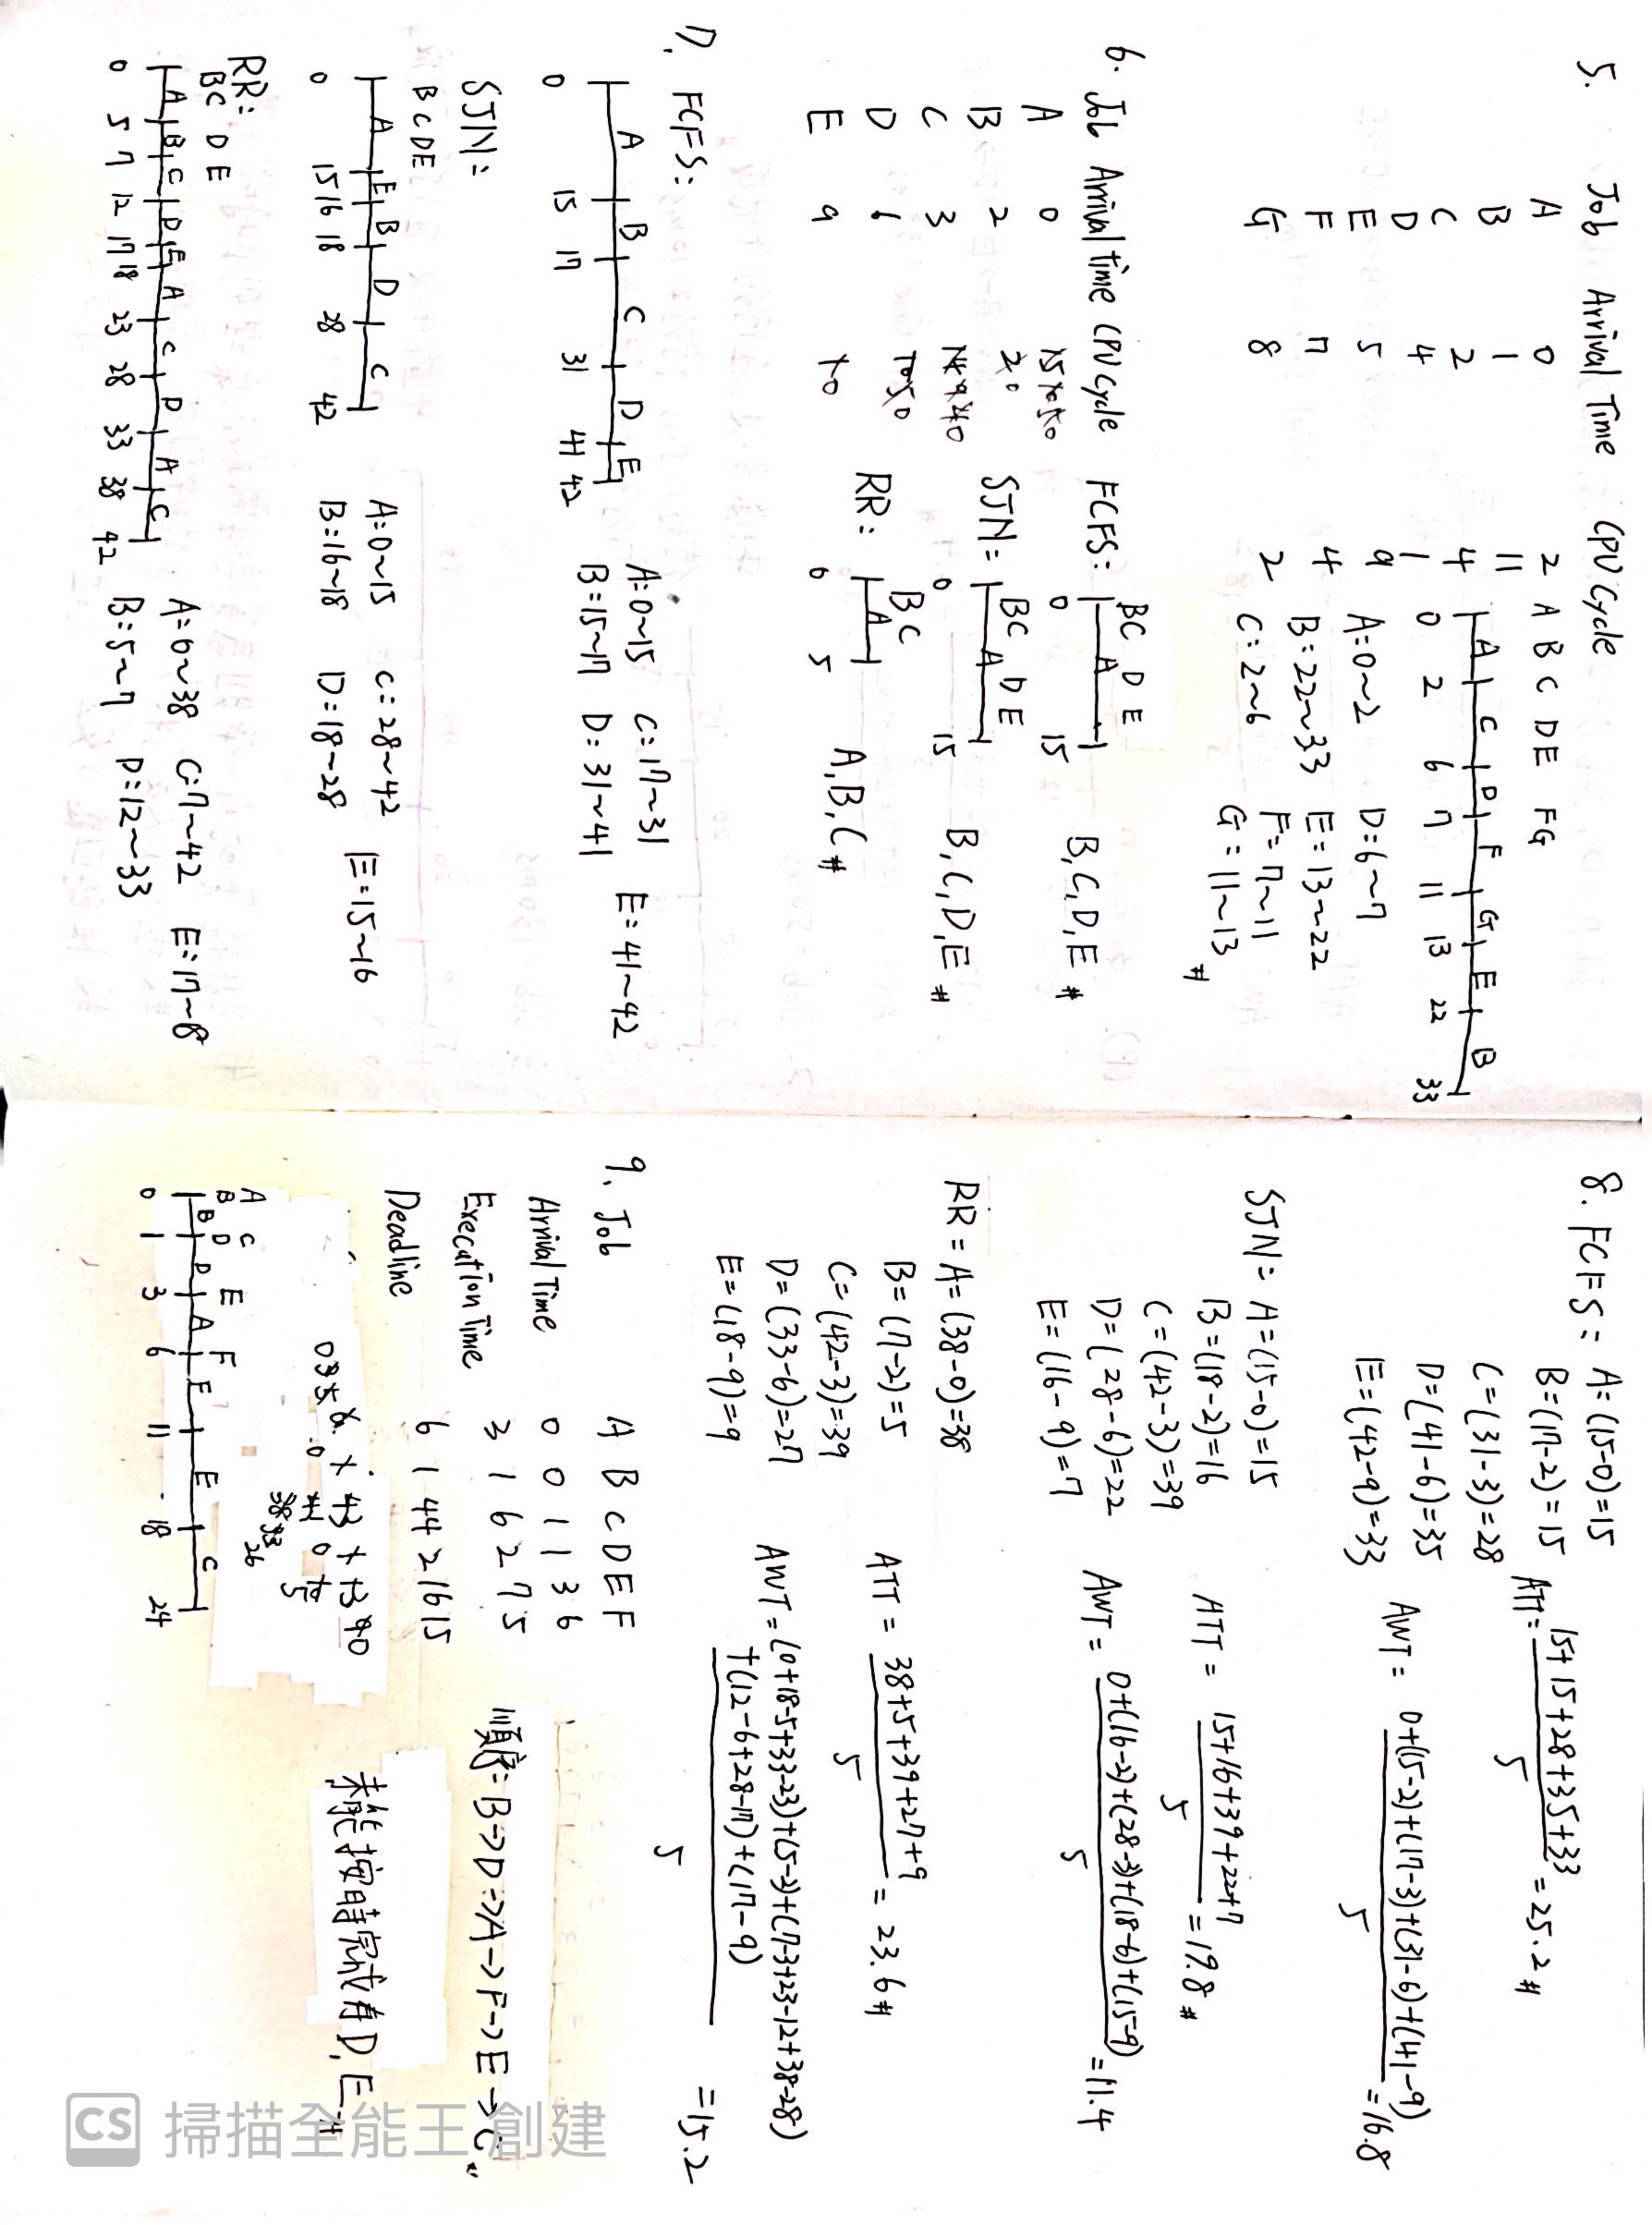 5. Job Arrival Time CPU Cycle
A 0 2
B 1 11
C 2 4
D 4 1
E 5 9
F 7 4
G 8 2
A B C D E F G
A C D F G E B
0 2 6 7 11 13 22 33
A:0~2 D:6~7
B:22~33 E:13~22
C:2~6 F=7~11
G:11~13 #
6. Job Arrival time CPU Cycle
A 0
B 2
C 3
D 6
E 9
FCFS: BC D E
A
0 15
B,C,D,E #
SJN= BC D E
A
0 15
B,C,D,E #
RR: BC
A
0 5
A,B,C #
7. FCFS:
A B C D E
0 15 17 31 41 42
A:0~15 C:17~31 E:41~42
B:15~17 D:31~41
SJN=
B C D E
A E B D C
0 15 16 18 28 42
A:0~15 C:28~42 E:15~16
B:16~18 D:18~28
RR:
BC D E
A B C D E A C D A C
0 5 7 12 17 18 23 28 33 38 42
A=0~38 C:7~42 E:17~8
B:5~7 D:12~33
8. FCFS= A=(15-0)=15
B=(17-2)=15
C=(31-3)=28
D=(41-6)=35
E=(42-9)=33
ATT=15+15+28+35+33/5=25.2 #
AWT=0+(15-2)+(17-3)+(31-6)+(41-9)/5=16.8
SJN= A=(15-0)=15
B=(18-2)=16
C=(42-3)=39
D=(28-6)=22
E=(16-9)=7
ATT=15+16+39+22+7/5=19.8 #
AWT=0+(16-2)+(28-3)+(18-6)+(15-9)/5=11.4
RR= A=(38-0)=38
B=(7-2)=5
C=(42-3)=39
D=(33-6)=27
E=(18-9)=9
ATT=38+5+39+27+9/5=23.6 #
AWT=(0+18-5+33-23)+(5-2)+(7-3+23-12+38-28)
+(12-6+28-17)+(17-9)/5
=15.2
9. Job A B C D E F
Arrival Time 0 0 1 1 3 6
Execution Time 3 1 6 2 7 5
Deadline 6 1 44 2 16 15
順序=B->D->A->F->E->C
未能按時完成有D,E #
A C
B D E F
B D A F E C
0 1 3 6 11 18 24
CS 掃描全能王 創建